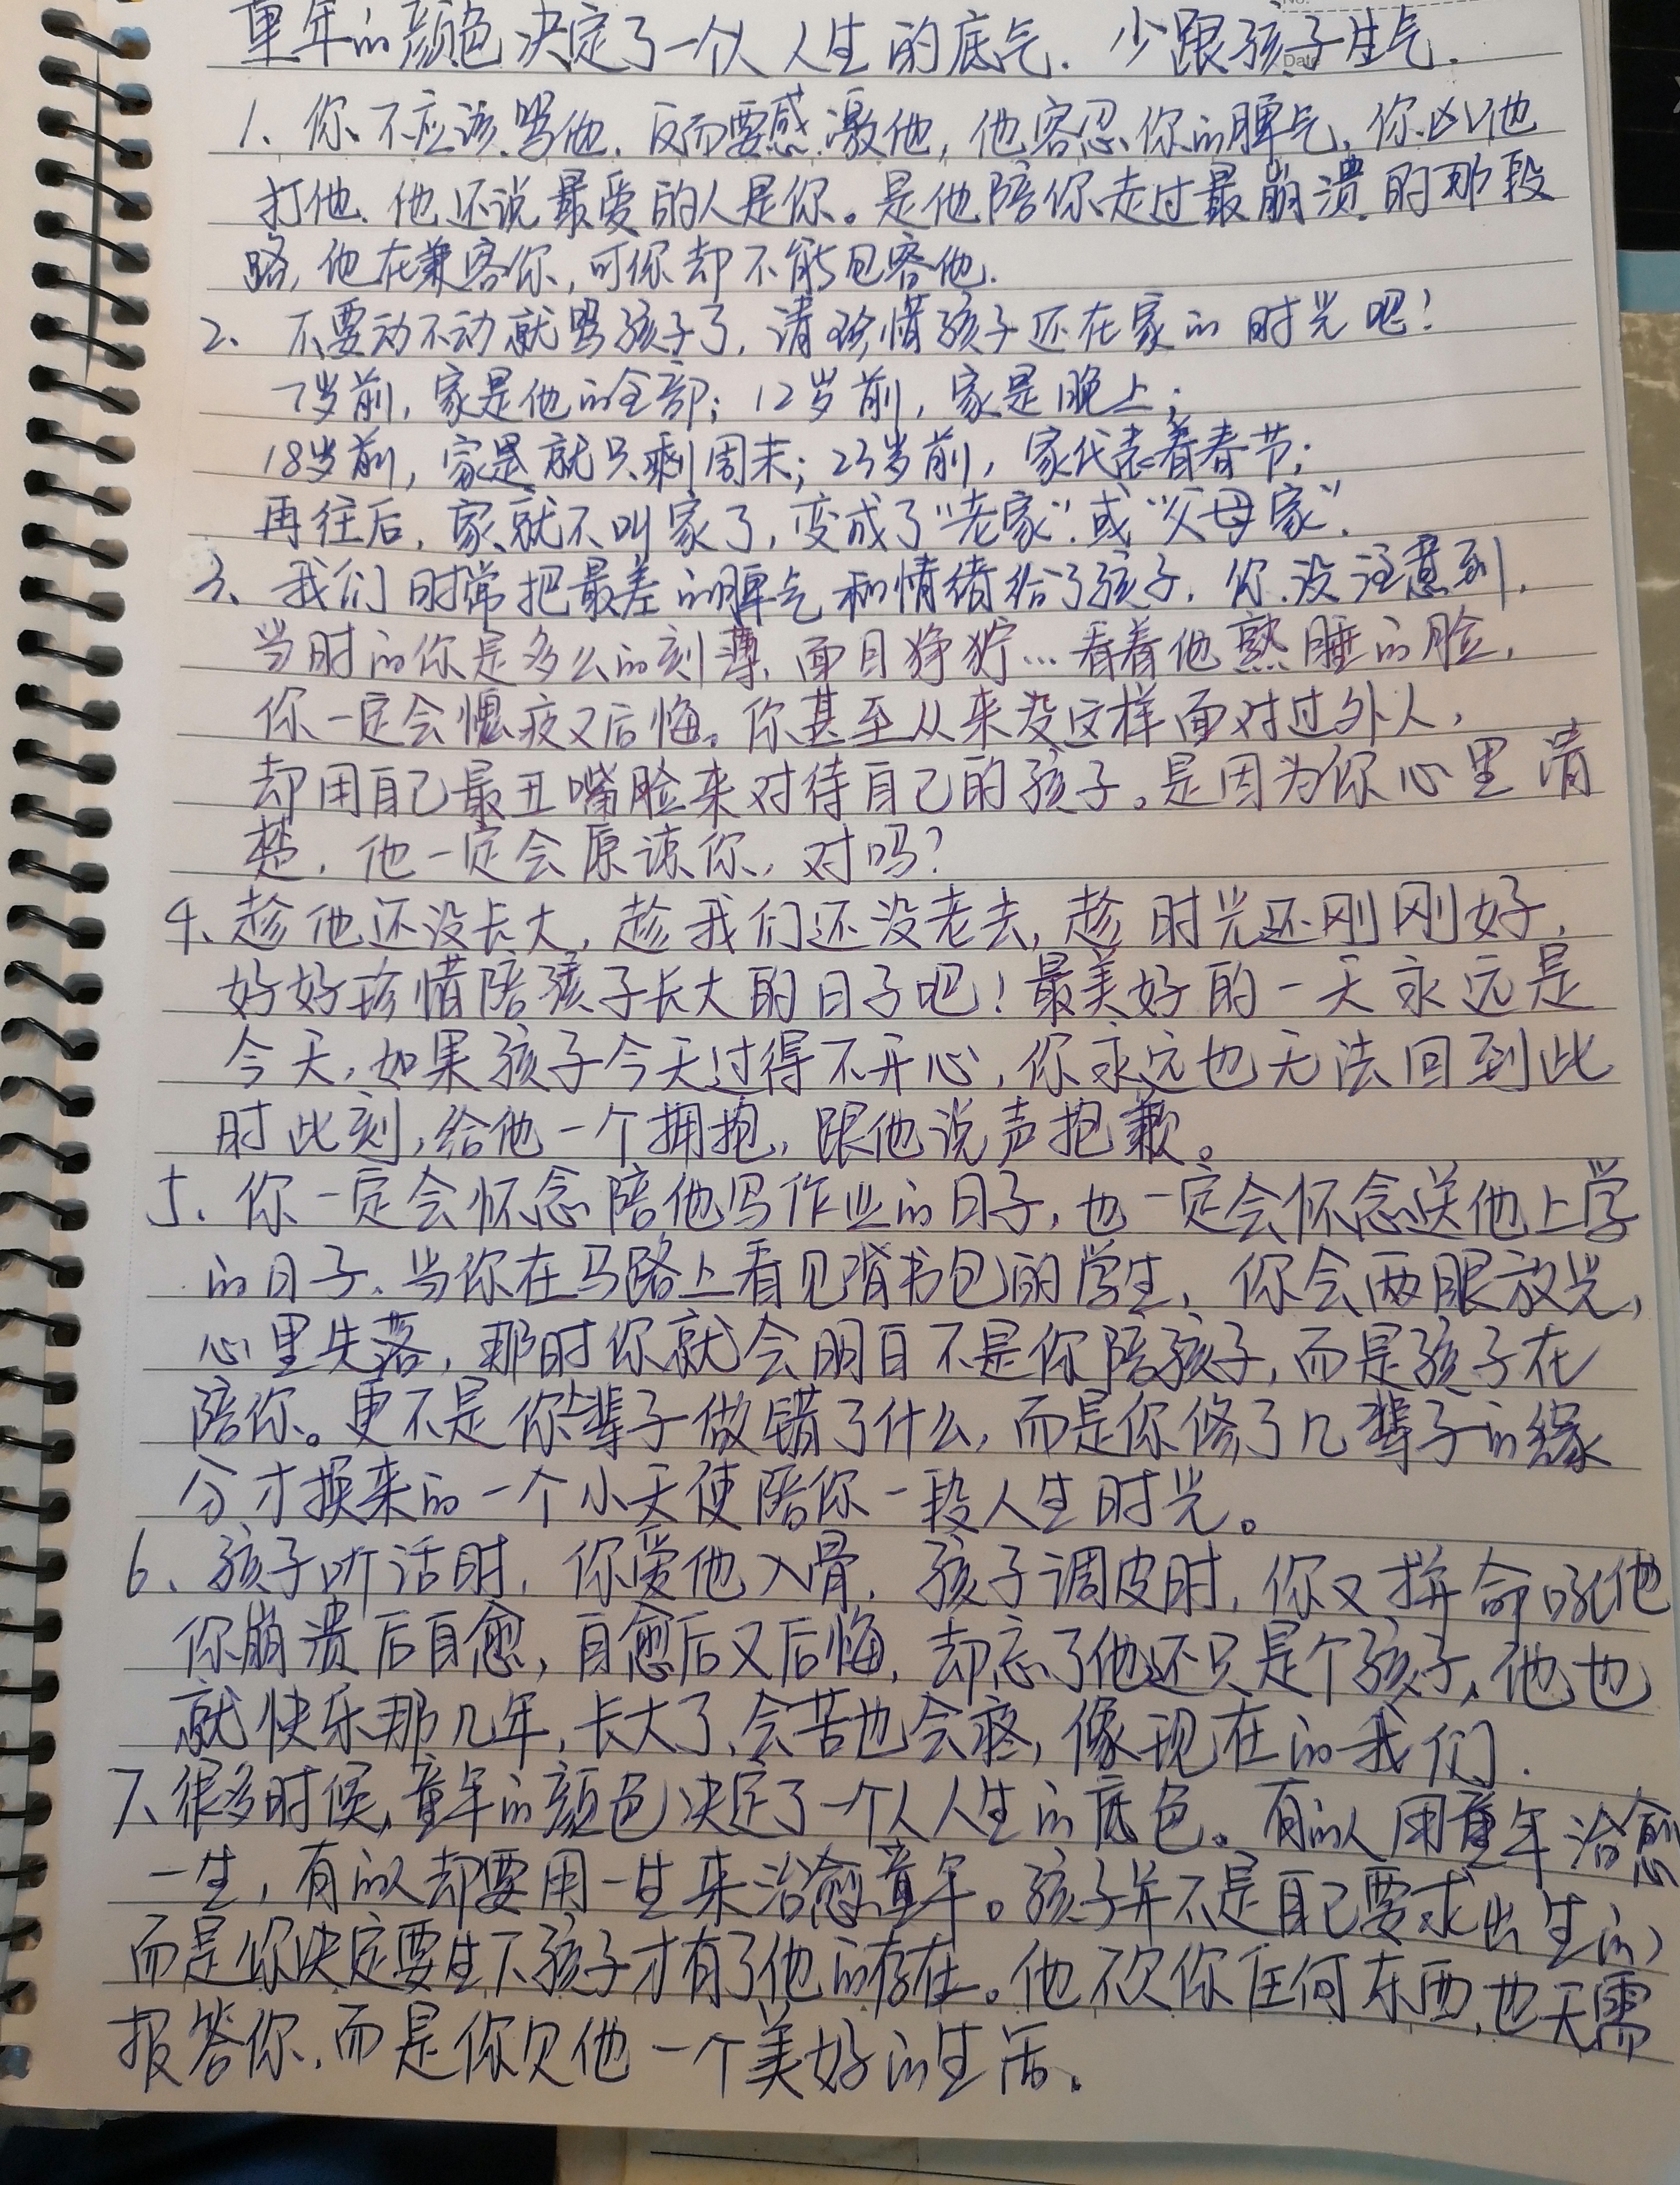 童年的颜色决定了一个人人生的底气. 少跟孩子生气.
Date
1、你不应该骂他. 反而要感激他, 他容忍你的脾气, 你凶他
打他. 他还说最爱的人是你。是他陪你走过最崩溃的那段
路, 他在兼容你, 可你却不能包容他.
2、不要动不动就骂孩子了, 请珍惜孩子还在家的时光吧!
7岁前, 家是他的全部; 12岁前, 家是晚上;
18岁前, 家是就只剩周末; 23岁前, 家代表着春节;
再往后, 家就不叫家了, 变成了“老家”. 或“父母家”.
3、我们时常把最差的脾气和情绪给了孩子. 你没注意到.
当时的你是多么的刻薄, 面目狰狞…看着他熟睡的脸,
你一定会愧疚又后悔。你甚至从来没这样面对过外人,
却用自己最丑嘴脸来对待自己的孩子。是因为你心里清
楚, 他一定会原谅你, 对吗?
4、趁他还没长大, 趁我们还没老去, 趁时光还刚刚好.
好好珍惜陪孩子长大的日子吧! 最美好的一天永远是
今天, 如果孩子今天过得不开心, 你永远也无法回到此
时此刻, 给他一个拥抱, 跟他说声抱歉。
5. 你一定会怀念陪他写作业的日子, 也一定会怀念送他上学
的日子. 当你在马路上看见背书包的学生, 你会两眼放光,
心里失落, 那时你就会明白不是你陪孩子, 而是孩子在
陪你。更不是你上辈子做错了什么, 而是你修了几辈子的缘
分才换来的一个小天使陪你一段人生时光。
6、孩子听话时, 你爱他入骨. 孩子调皮时, 你又拼命吼他
你崩溃后自愈, 自愈后又后悔, 却忘了他还只是个孩子, 他也
就快乐那几年, 长大了, 会苦也会疼, 像现在的我们.
7、很多时候, 童年的颜色决定了一个人人生的底色。有的人用童年治愈
一生, 有的人却要用一生来治愈童年。孩子并不是自己要求出生的,
而是你决定要生下孩子才有了他的存在。他不欠你任何东西, 也无需
报答你, 而是你欠他一个美好的生活.